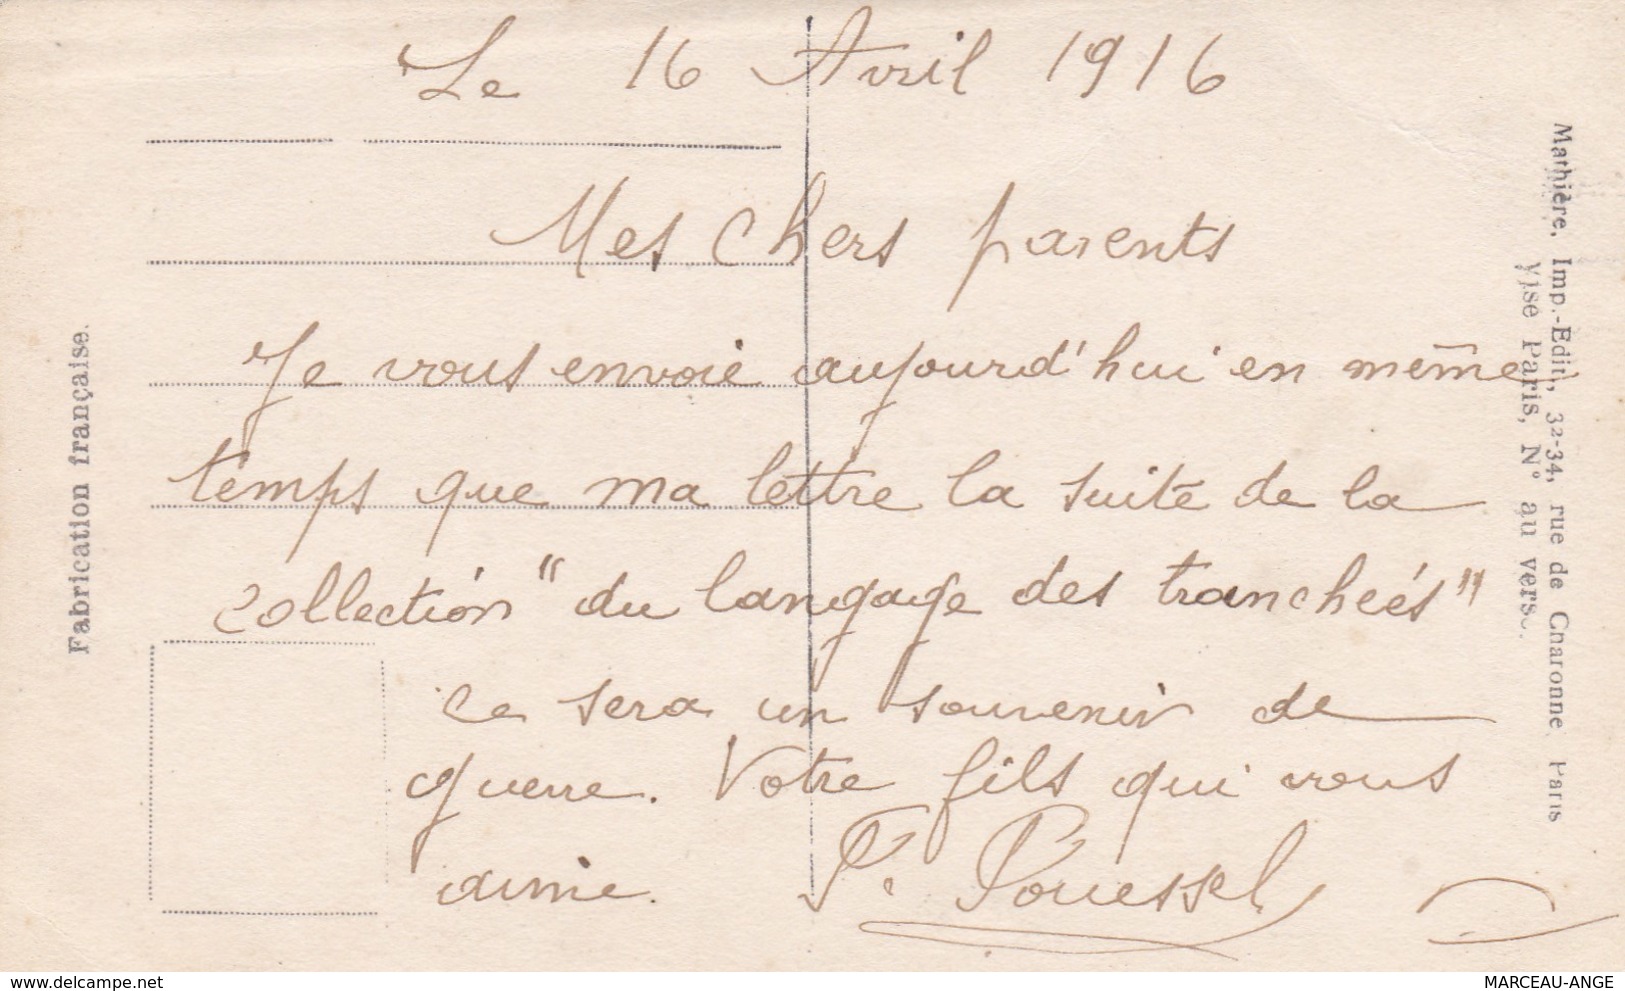 Le 16 Avril 1916
Mes chers parents
Je vous envoie aujourd'hui en même
temps que ma lettre la suite de la
collection "du langage des trancheés"
ce sera un souvenir de
guerre. Votre fils qui vous
aime. P. Pouessel
Fabrication française.
Mathière, Imp.-Edit., 32-34, rue de Charonne, Paris
Vise Paris, N° au verso.
delcampe.net
MARCEAU-ANGE